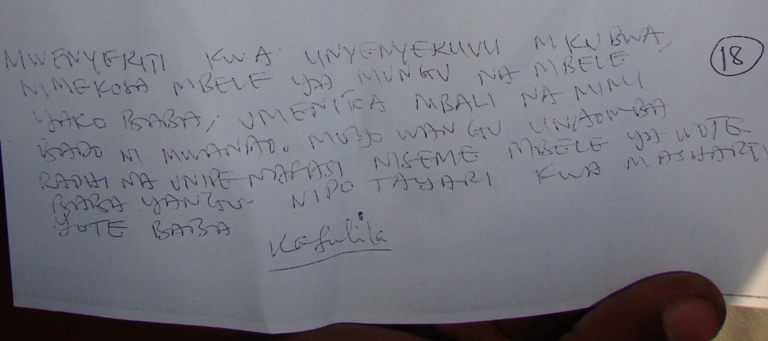 18
MWENYEKITI KWA UNYENYEKUVU MKUBWA,
NIMEKOSA MBELE YA MUNGU NA MBELE
YAKO BABA, UMENITOA MBALI NA MIMI
BADO NI MWANAO. MOYO WANGU UNAOMBA
RADHI NA UNIPE NAFASI NISEME MBELE YA WOTE
BABA YANGU. NIPO TAYARI KWA MASHARTI
YOTE BABA
Kafulila